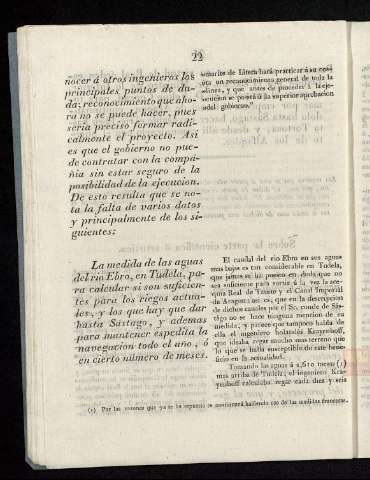 22
nocer á otros ingenieros los
principales puntos de du-
da; reconocimiento que aho-
ra no se puede hacer, pues
seria preciso formar radi-
calmente el proyecto. Asi
es que el gobierno no pue-
de contratar con la compa-
ñia sin estar seguro de la
posibilidad de la ejecucion.
De esto resulta que se no-
ta la falta de varios datos
y principalmente de los si-
guientes:
La medida de las aguas
del rio Ebro, en Tudela, pa-
ra calcular si son suficien-
tes para los riegos actua-
les, y los que hay que dar
hasta Sastago, y ademas
para mantener espedita la
navegacion todo el año, ó
en cierto número de meses.
de hará practicar á su cos-
ta un reconocimiento general de toda la
línea, y que antes de proceder á la eje-
cucion se pedirá á la superior aprobacion
del gobierno."
El caudal del rio Ebro en sus aguas
mas bajas es tan considerable en Tudela,
que jamas se ha puesto en duda que no
sea suficiente para surtir á la vez la ace-
quia Real de Tauste y el Canal Imperial
de Aragon: asi es, que en la descripcion
de dichos canales por el Sr. conde de Sás-
tago no se hace ninguna mencion de su
medida; y parece que tampoco habla de
ella el ingeniero holandés
que ideaba regar mucho mas terreno que
lo que se halla susceptible de este bene-
ficio en la actualidad.
Tomando las aguas á 2,610 toesas (1)
mas arriba de Tudela, el ingeniero Kra-
calculaba regar cada diez y seis
(1) Por las razones que ya se ha espuesto se continuará haciendo uso de las medidas francesas.